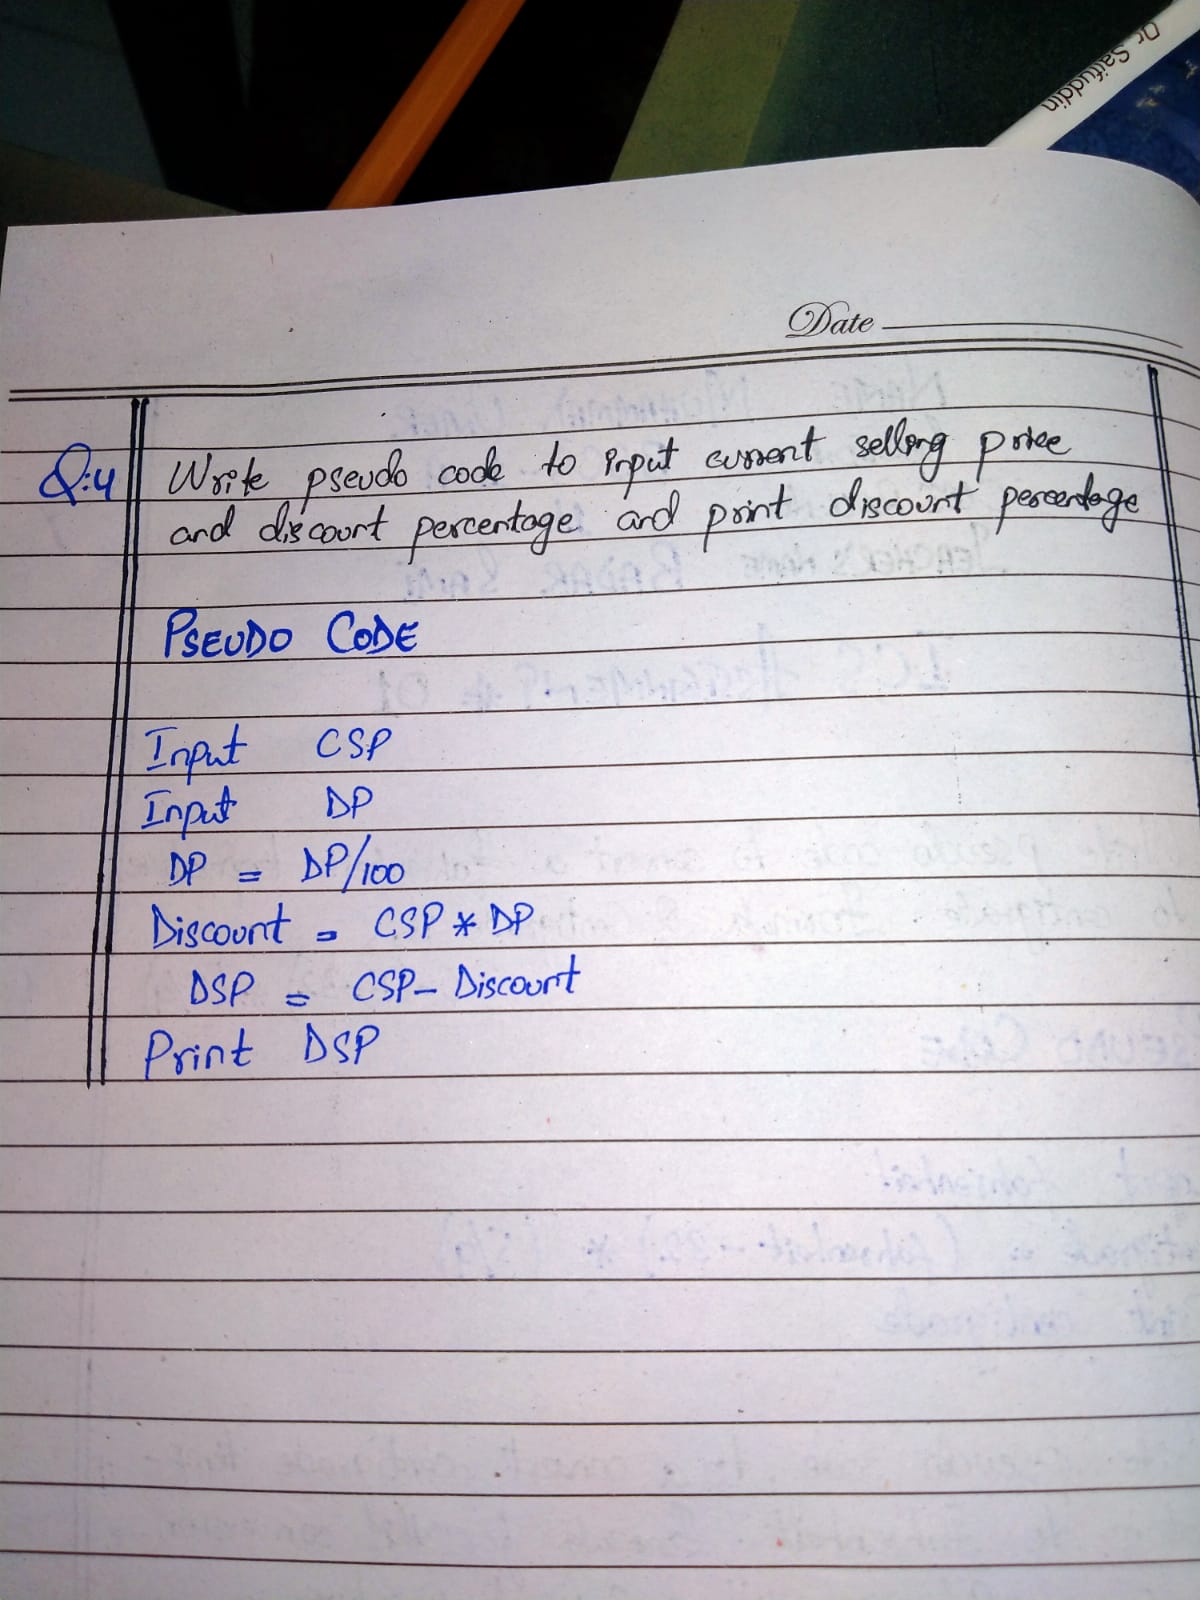 Dr Saifuddin
Date
Q:4 Write pseudo code to input current selling price
and discount percentage and print discount percentage
PSEUDO CODE
Input CSP
Input DP
DP = DP/100
Discount = CSP * DP
DSP = CSP - Discount
Print DSP